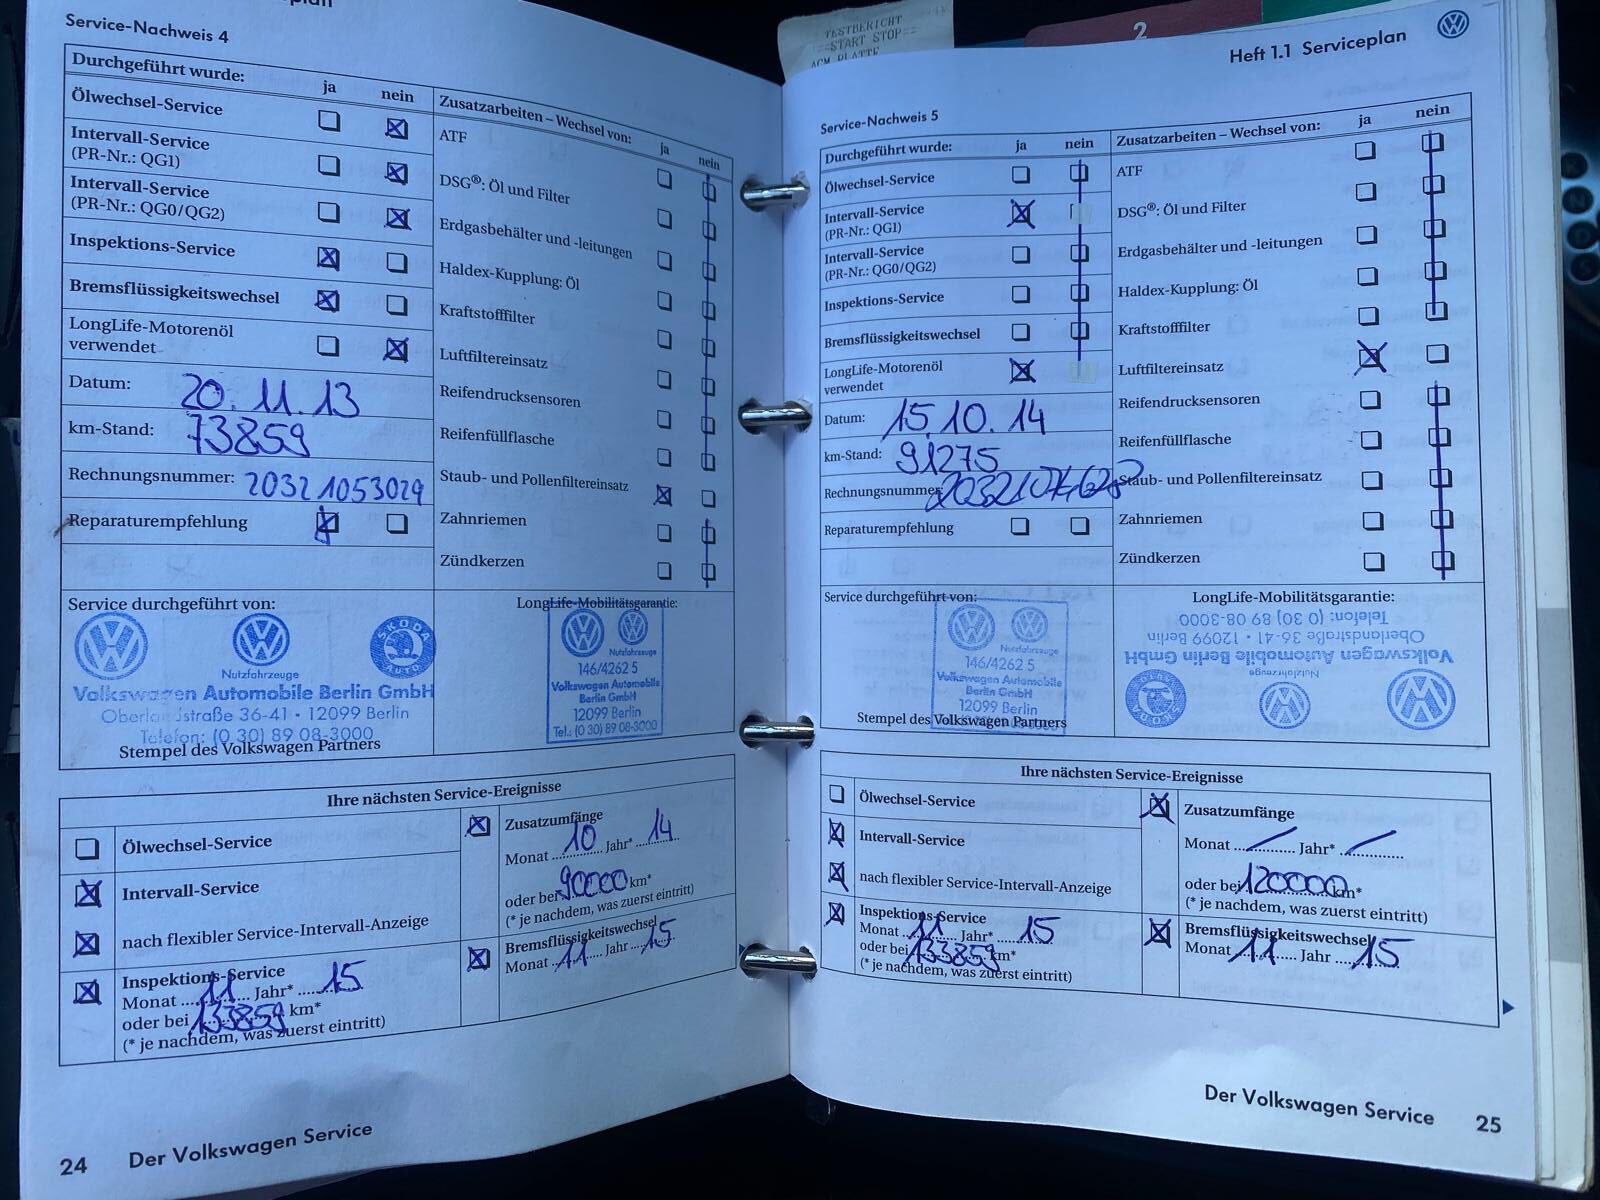 Service-Nachweis 4
Durchgeführt wurde:
ja nein
Ölwechsel-Service
Intervall-Service
(PR-Nr.: QG1)
Intervall-Service
(PR-Nr.: QG0/QG2)
Inspektions-Service
Bremsflüssigkeitswechsel
LongLife-Motorenöl
verwendet
Datum: 20.11.13
km-Stand: 73859
Rechnungsnummer: 20321053029
Reparaturempfehlung
Zusatzarbeiten – Wechsel von:
ja nein
ATF
DSG®: Öl und Filter
Erdgasbehälter und -leitungen
Haldex-Kupplung: Öl
Kraftstofffilter
Luftfiltereinsatz
Reifendrucksensoren
Reifenfüllflasche
Staub- und Pollenfiltereinsatz
Zahnriemen
Zündkerzen
Service durchgeführt von:
Nutzfahrzeuge
SKODA
Volkswagen Automobile Berlin GmbH
Oberlandstraße 36-41 • 12099 Berlin
Telefon: (0 30) 89 08-3000
Stempel des Volkswagen Partners
LongLife-Mobilitätsgarantie:
Nutzfahrzeuge
146/4262 5
Volkswagen Automobile
Berlin GmbH
12099 Berlin
Tel.: (0 30) 89 08-3000
Ihre nächsten Service-Ereignisse
Ölwechsel-Service
Intervall-Service
nach flexibler Service-Intervall-Anzeige
Inspektions-Service
Monat 11 Jahr* 15
oder bei 133859 km*
(* je nachdem, was zuerst eintritt)
Zusatzumfänge
Monat 10 Jahr* 14
oder bei 90000 km*
(* je nachdem, was zuerst eintritt)
Bremsflüssigkeitswechsel
Monat 11 Jahr 15
24 Der Volkswagen Service
TESTBERICHT
==START STOP==
AGM PLATTE
2
Heft 1.1 Serviceplan
Service-Nachweis 5
Durchgeführt wurde:
ja nein
Ölwechsel-Service
Intervall-Service
(PR-Nr.: QG1)
Intervall-Service
(PR-Nr.: QG0/QG2)
Inspektions-Service
Bremsflüssigkeitswechsel
LongLife-Motorenöl
verwendet
Datum: 15.10.14
km-Stand: 91275
Rechnungsnummer:
Reparaturempfehlung
Zusatzarbeiten – Wechsel von:
ja nein
ATF
DSG®: Öl und Filter
Erdgasbehälter und -leitungen
Haldex-Kupplung: Öl
Kraftstofffilter
Luftfiltereinsatz
Reifendrucksensoren
Reifenfüllflasche
Staub- und Pollenfiltereinsatz
Zahnriemen
Zündkerzen
Service durchgeführt von:
Nutzfahrzeuge
146/4262 5
Volkswagen Automobile
Berlin GmbH
12099 Berlin
Stempel des Volkswagen Partners
LongLife-Mobilitätsgarantie:
Nutzfahrzeuge
SKODA
Volkswagen Automobile Berlin GmbH
Oberlandstraße 36-41 • 12099 Berlin
Telefon: (0 30) 89 08-3000
Ihre nächsten Service-Ereignisse
Ölwechsel-Service
Intervall-Service
nach flexibler Service-Intervall-Anzeige
Inspektions-Service
Monat 11 Jahr* 15
oder bei 133859 km*
(* je nachdem, was zuerst eintritt)
Zusatzumfänge
Monat Jahr*
oder bei 120000 km*
(* je nachdem, was zuerst eintritt)
Bremsflüssigkeitswechsel
Monat 11 Jahr 15
Der Volkswagen Service 25